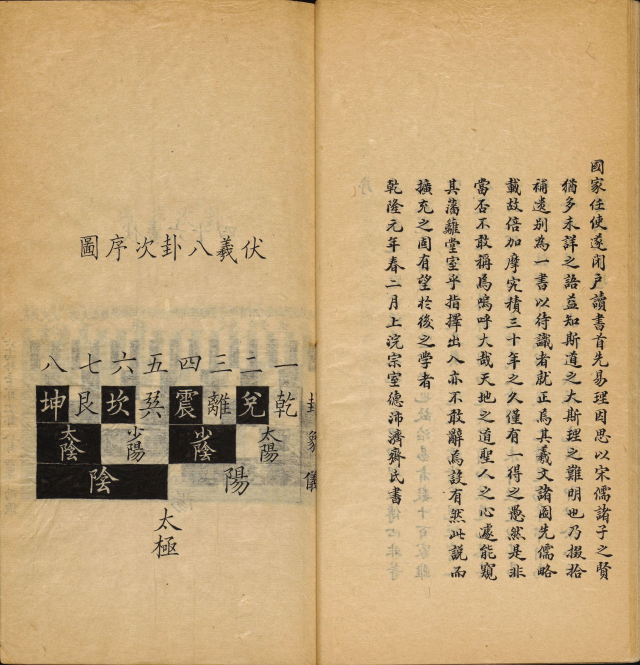 國家任使遂閉戶讀書首先易理因思以宋儒諸子之賢
猶多未詳之語益知斯道之大斯理之難明也乃掇拾
補遺別為一書以待識者就正焉其羲文諸圖先儒略
載故倍加摩究積三十年之久僅有一得之愚然是非
當否不敢稱焉嗚呼大哉天地之道聖人之心遽能窺
其藩籬堂室乎指擇出入亦不敢辭焉設有然此說而
擴充之固有望於後之學者
乾隆元年春二月上浣宗室德沛濟齋氏書
伏羲八卦次序圖
一二三四五六七八
乾兌離震巽坎艮坤
太陽少陰少陽太陰
陽陰
太極
卦象儀